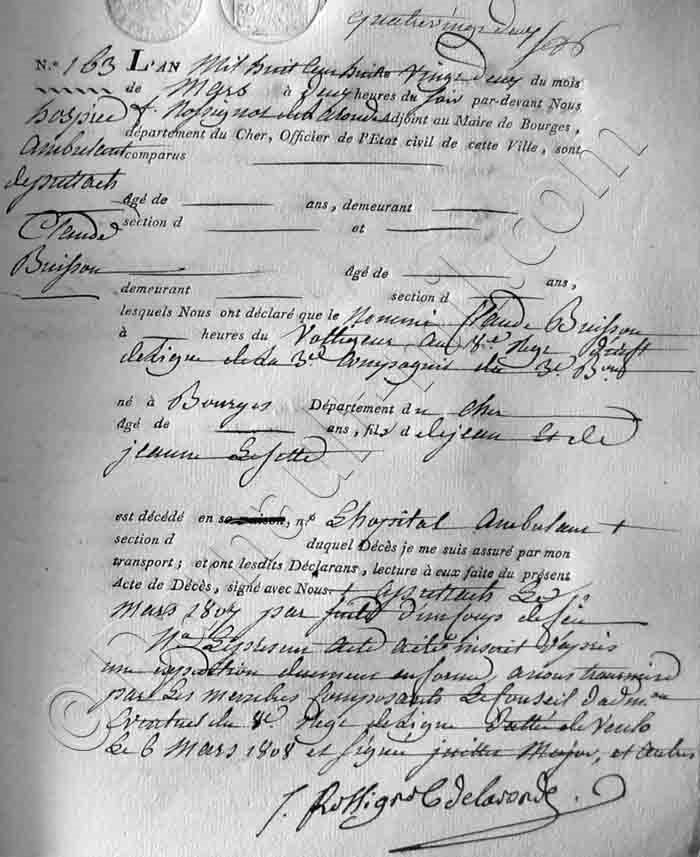 quatre vingt deux
N.º 163 L'AN Mil huit cent huit Vingt deux du mois
de Mars à deux heures du Soir par-devant Nous
hospice
f. Rossignol delalonde Adjoint au Maire de Bourges,
Ambulant
département du Cher, Officier de l'Etat civil de cette Ville, sont
comparus
âgé de ans, demeurant
section d et
Claude
Buisson
âgé de ans,
demeurant section d
lesquels Nous ont déclaré que le Nommé Claude Buisson
à heures du Voltigeur Au 8.e Reg.
de Ligne de La 3.e Compagnie du 3.e
né à Bourges Département du Cher
âgé de ans, fils d de jean Et de
jeanne
est décédé en sa maison, n.º L'hopital Ambulant +
section d duquel Décès je me suis assuré par mon
transport; et ont lesdits Déclarans, lecture à eux faite du présent
Acte de Décès, signé avec Nous. +
Mars 1807 par suite d'un coup de feu
N.a Le présent Acte a été inscrit d'après
une expédition en forme, a nous transmise
par Les membres Composants Le Conseil d'adm.on
Eventuel du 8.e Reg. de Ligne datté de
Le 6 Mars 1808 et Signée Major, et autres
f. Rossignol delalonde.